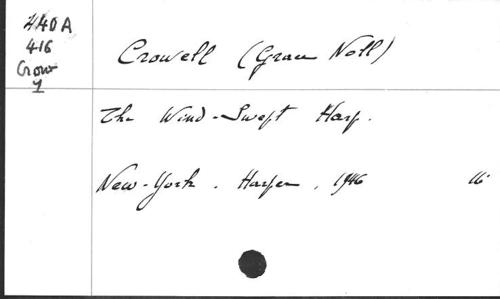 440A
416
Crow
1
Crowell (Grace Noll)
The Wind-Swept Harp.
New-York. Harper, 1946 16°